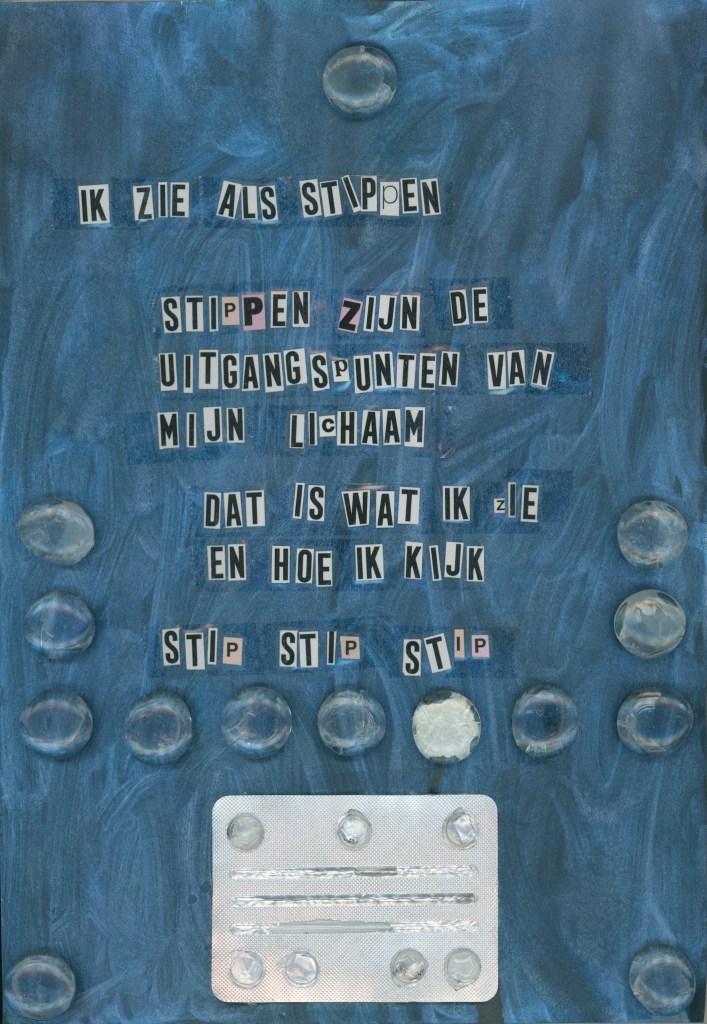 IK ZIE ALS STIPPEN
STIPPEN ZIJN DE
UITGANGSPUNTEN VAN
MIJN LICHAAM
DAT IS WAT IK ZIE
EN HOE IK KIJK
STIP STIP STIP